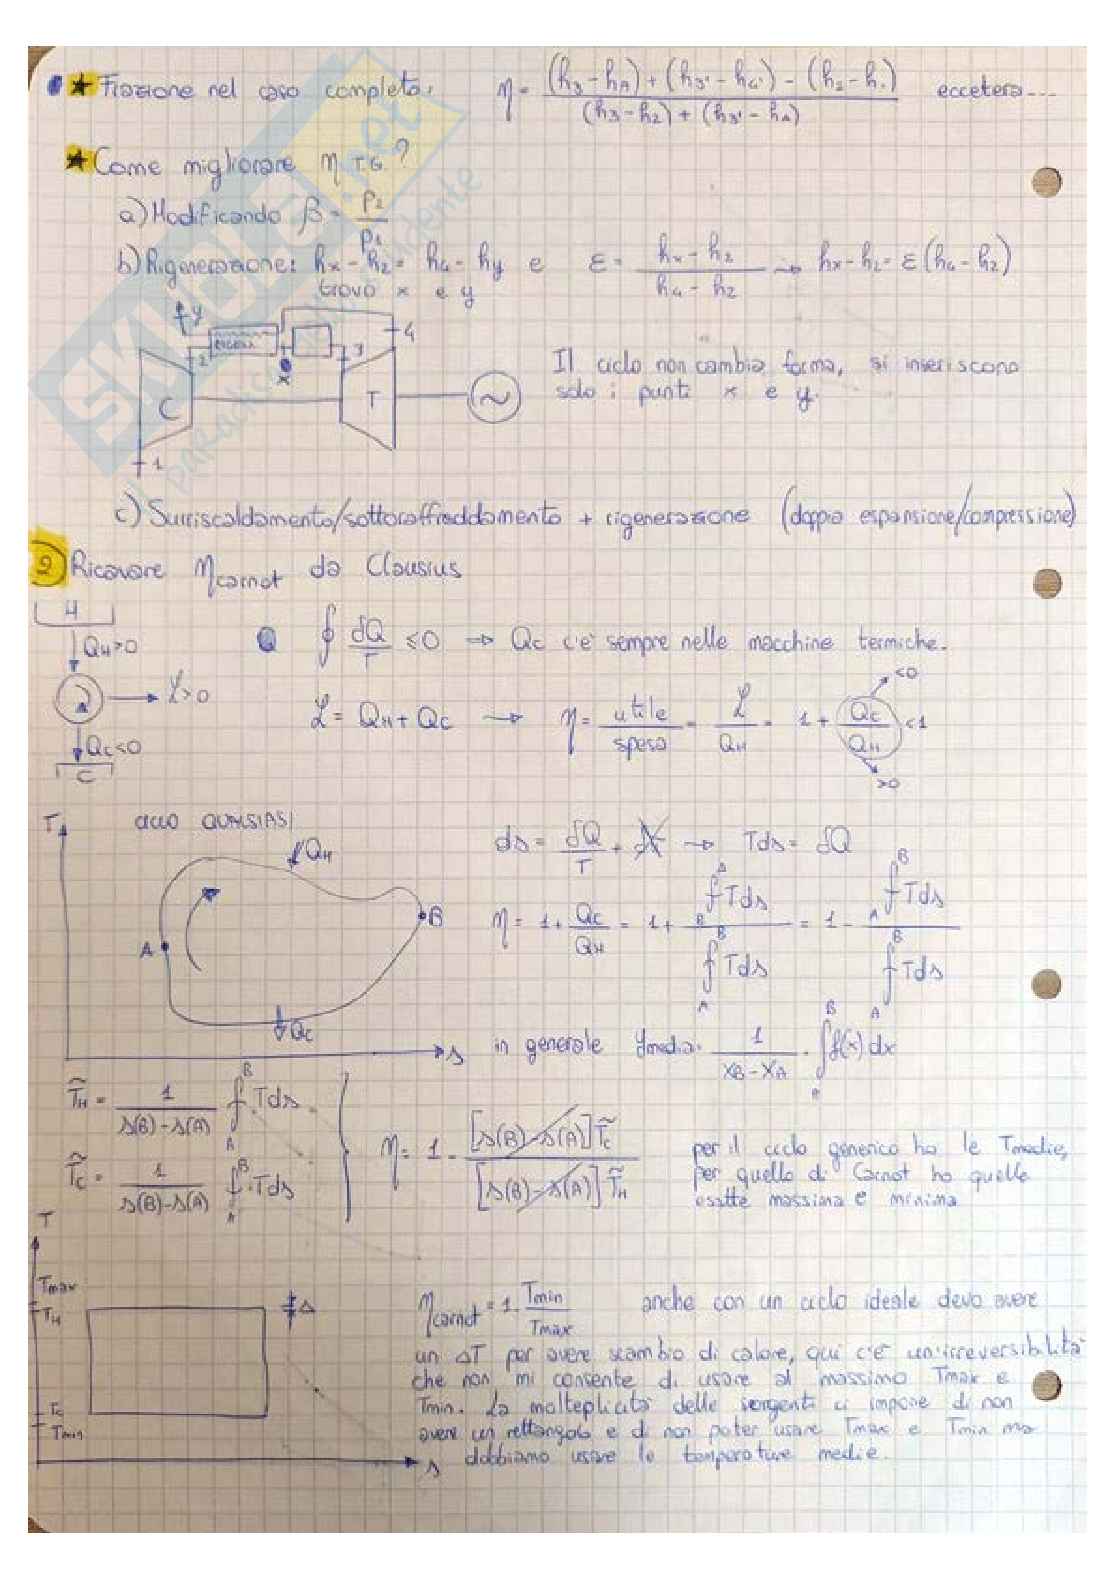 ★ Frazione nel caso completo: η = (h₃ - h_A) + (h₃' - h₄') - (h₂ - h₁) / (h₃ - h₂) + (h₃' - h_A) eccetera...
★ Come migliorare η TG?
a) Modificando β = P₂/P₁
b) Rigenerazione: hₓ - h₂ = h₄ - h_y e ε = hₓ - h₂ / h₄ - h₂ → hₓ - h₂ = ε(h₄ - h₂)
trovo x e y
y
4
2
3
x
C
T
~
1
Il ciclo non cambia forma, si inseriscono
solo i punti x e y.
c) Surriscaldamento/sottoraffreddamento + rigenerazione (doppia espansione/compressione)
2 Ricavare ηcarnot da Clausius
H
Q_H>0
L>0
Qc<0
C
∮ δQ/T ≤0 → Qc c'è sempre nelle macchine termiche.
L = Q_H + Qc → η = utile/spesa = L/Q_H = 1 + Qc/Q_H <1
<0
>0
T
ciclo QUALSIASI
Q_H
A
B
Qc
s
ds = δQ/T + → Tds = δQ
η = 1 + Qc/Q_H = 1 + ∮_B^A Tds / ∮_A^B Tds = 1 - ∮_A^B Tds / ∮_A^B Tds
in generale ymedia = 1/(x_B - x_A) · ∫_A^B f(x) dx
T̃_H = 1/(s(B)-s(A)) ∮_A^B Tds
T̃c = 1/(s(B)-s(A)) ∮_A^B Tds
η = 1 - [s(B)-s(A)]T̃c / [s(B)-s(A)]T̃_H
per il ciclo generico ho le Tmedie,
per quello di Carnot ho quelle
esatte massima e minima
T
Tmax
T_H
Tc
Tmin
Δ
s
ηcarnot = 1 - Tmin/Tmax anche con un ciclo ideale devo avere
un ΔT per avere scambio di calore, qui c'è un'irreversibilità
che non mi consente di usare al massimo Tmax e
Tmin. La molteplicità delle sorgenti ci impone di non
avere un rettangolo e di non poter usare Tmax e Tmin ma
dobbiamo usare le temperature medie.
SKUOLA.net
il paradiso dello studente